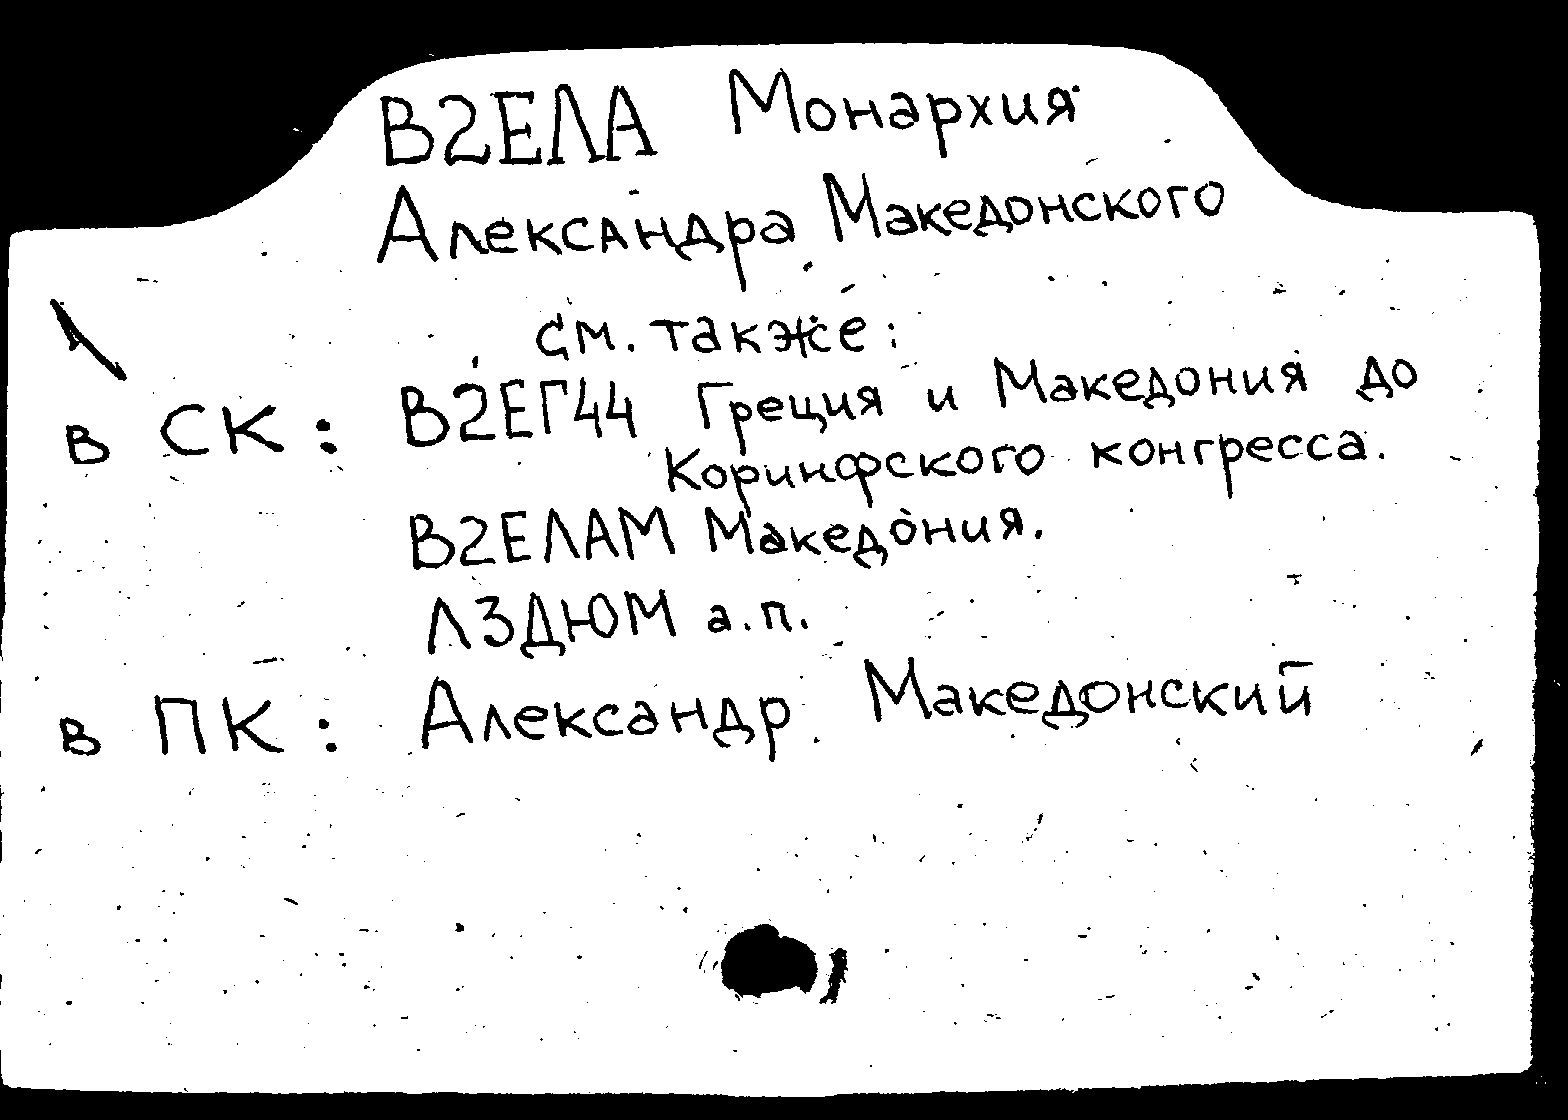 В2ЕЛА Монархия
Александра Македонского
см. также:
в СК: В2ЕГ44 Греция и Македония до
Коринфского конгресса.
В2ЕЛАМ Македония.
Л3ДЮМ а.п.
в ПК: Александр Македонский